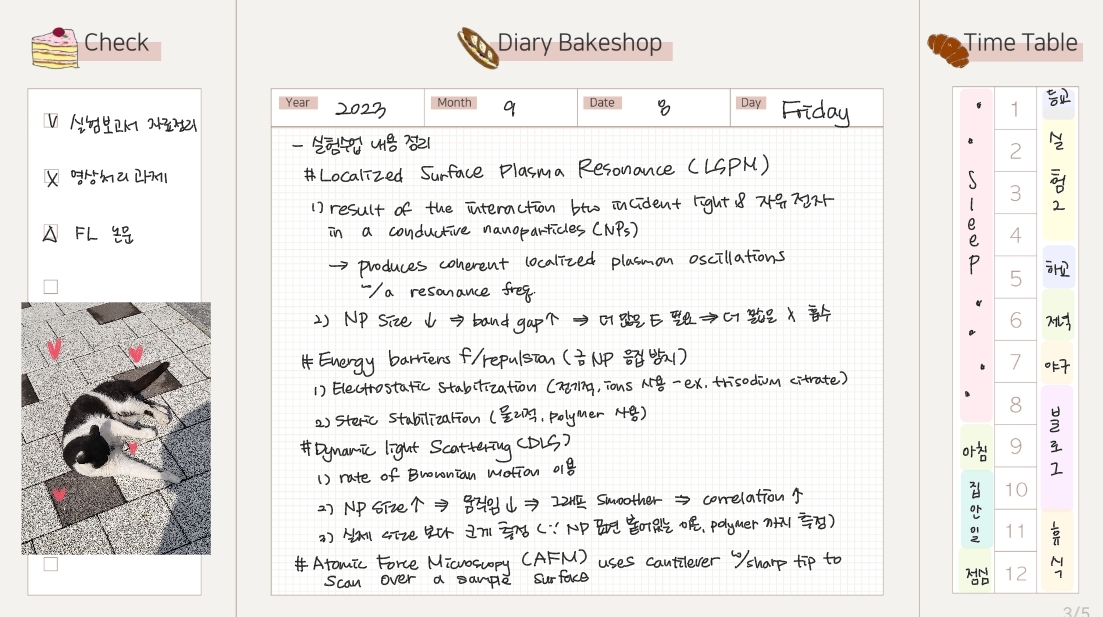 Check
Diary Bakeshop
Time Table
V 실험보고서 자료정리
X 영상처리 과제
△ FL 논문
Year 2023 Month 9 Date 8 Day Friday
- 실험수업 내용 정리
# Localized Surface Plasma Resonance (LSPM)
1) result of the interaction btw incident light & 자유전자
in a conductive nanoparticles (NPs)
→ produces coherent localized plasmon oscillations
w/a resonance freq.
2) NP size ↓ ⇒ band gap↑ ⇒ 더 많은 E 필요 ⇒ 더 짧은 λ 흡수
# Energy barriers f/repulsion (금NP 응집 방지)
1) Electrostatic Stabilization (전기적, ions 사용 - ex. trisodium citrate)
2) Steric Stabilization (물리적, polymer 사용)
# Dynamic light Scattering (DLS)
1) rate of Brownian motion 이용
2) NP size↑ ⇒ 움직임↓ ⇒ 그래프 smoother ⇒ correlation ↑
3) 실제 size 보다 크게 측정 (∵ NP 표면 붙어있는 이온, polymer 까지 측정)
# Atomic Force Microscopy (AFM) uses cantilever w/sharp tip to
scan over a sample surface
Sleep
아침
집안일
점심
1
2
3
4
5
6
7
8
9
10
11
12
등교
실험2
하교
저녁
야구
블로그
휴식
3/5